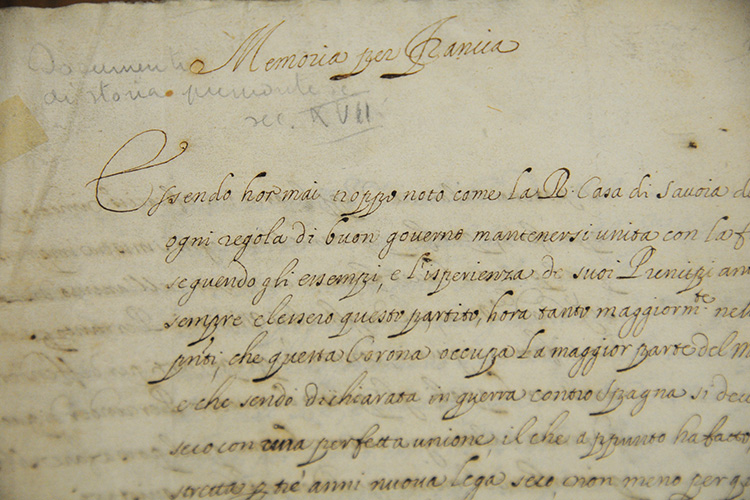 Memoria per Francia
Documenti
di storia piemonte.e
sec. XVII
Essendo hormai troppo noto come la R. Casa di Savoia d
ogni regola di buon governo mantenersi unita con la f
seguendo gli essempi, e l'isperienza de suoi Prencipi an
sempre elessero questo partito, hora tanto maggiorm.te nel
pnti, che questa Corona occupa la maggior parte del m
e che sendo dichiarata in guerra contro Spagna si de
seco con una perfetta unione, il che appunto ha fatto
stretta p tre anni nuova lega seco, e non meno per q